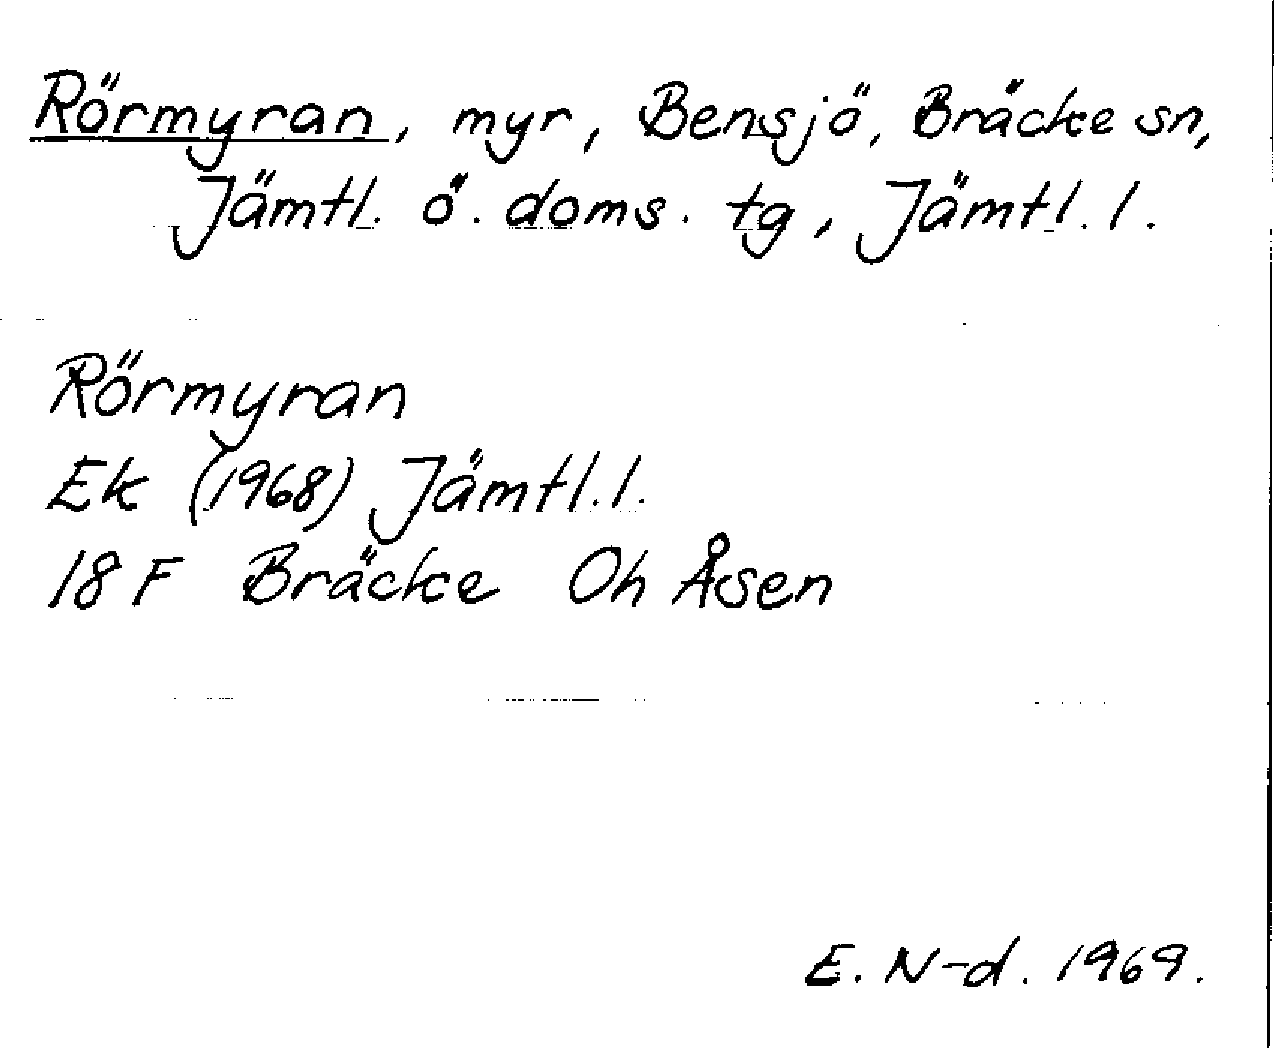 Rörmyran, myr, Bensjö, Bräcke sn,
Jämtl. ö. doms. tg, Jämtl. l.
Rörmyran
Ek (1968) Jämtl. l.
18 F Bräcke Oh Åsen
E. N-d. 1969.